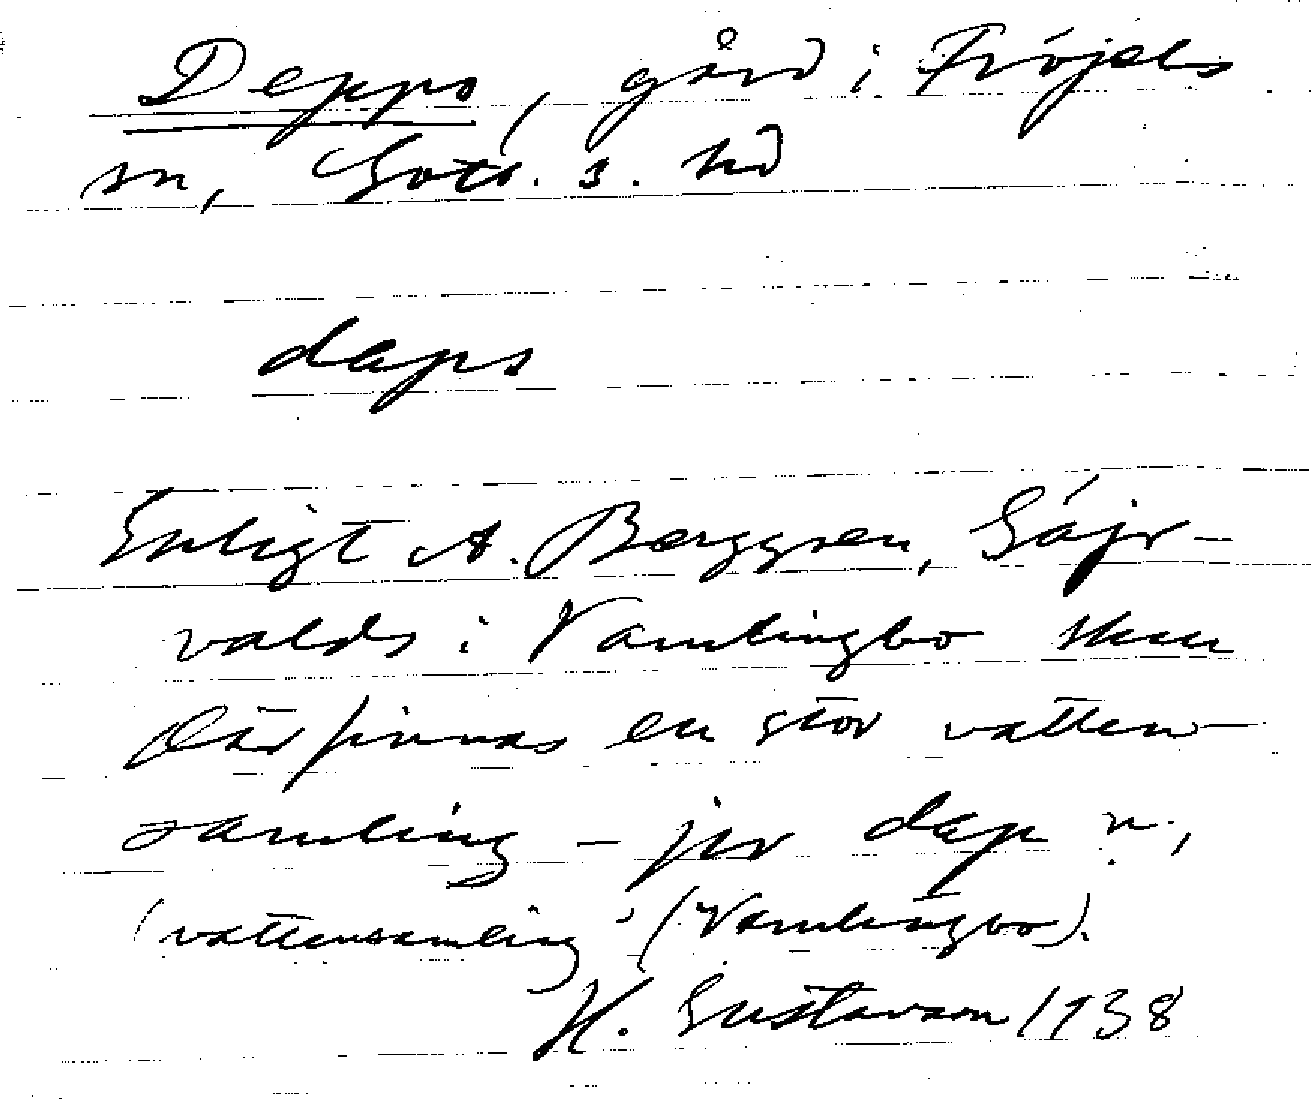 Depps, gård i Fröjels
sn, Gotl. s. hd
daps
Enligt A. Berggren, Sojr-
valds i Vamlingbo skall
där finnas en stor vatten-
samling – jfr dep n.,
'vattensamling' (Vamlingbo).
H. Gustavson 1938